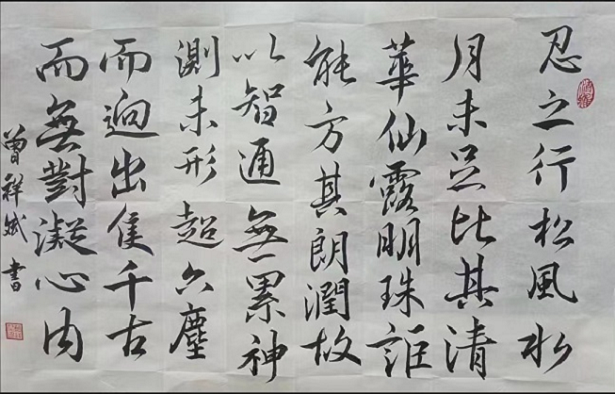 忍之行松風水
月未足比其清
華仙露明珠詎
能方其朗潤故
以智通無累神
測未形超六塵
而迥出隻千古
而無對凝心內
曾祥斌書